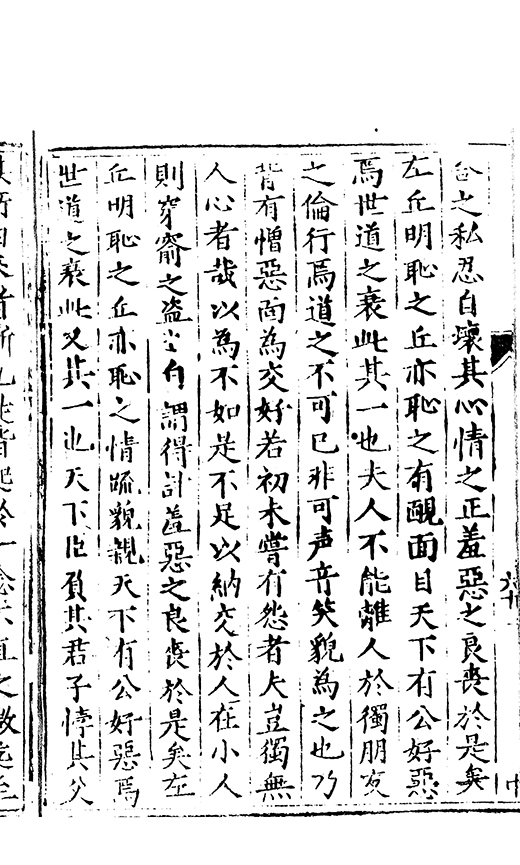 之私忍自壞其心情之正羞惡之良喪於是矣
左丘明恥之丘亦恥之有靦面目天下有公好惡
焉世道之衰此其一也夫人不能離人於獨朋友
之倫行焉道之不可已非可声音笑貌為之也乃
背有憎惡面為交好若初未嘗有怨者夫豈獨無
人心者哉以為不如是不足以納交於人在小人
則穿窬之盜自謂得計羞惡之良喪於是矣左
丘明恥之丘亦恥之情疏貌親天下有公好惡焉
世道之衰此又其一也天下臣負其君子悖其父
皆起於一念不直之